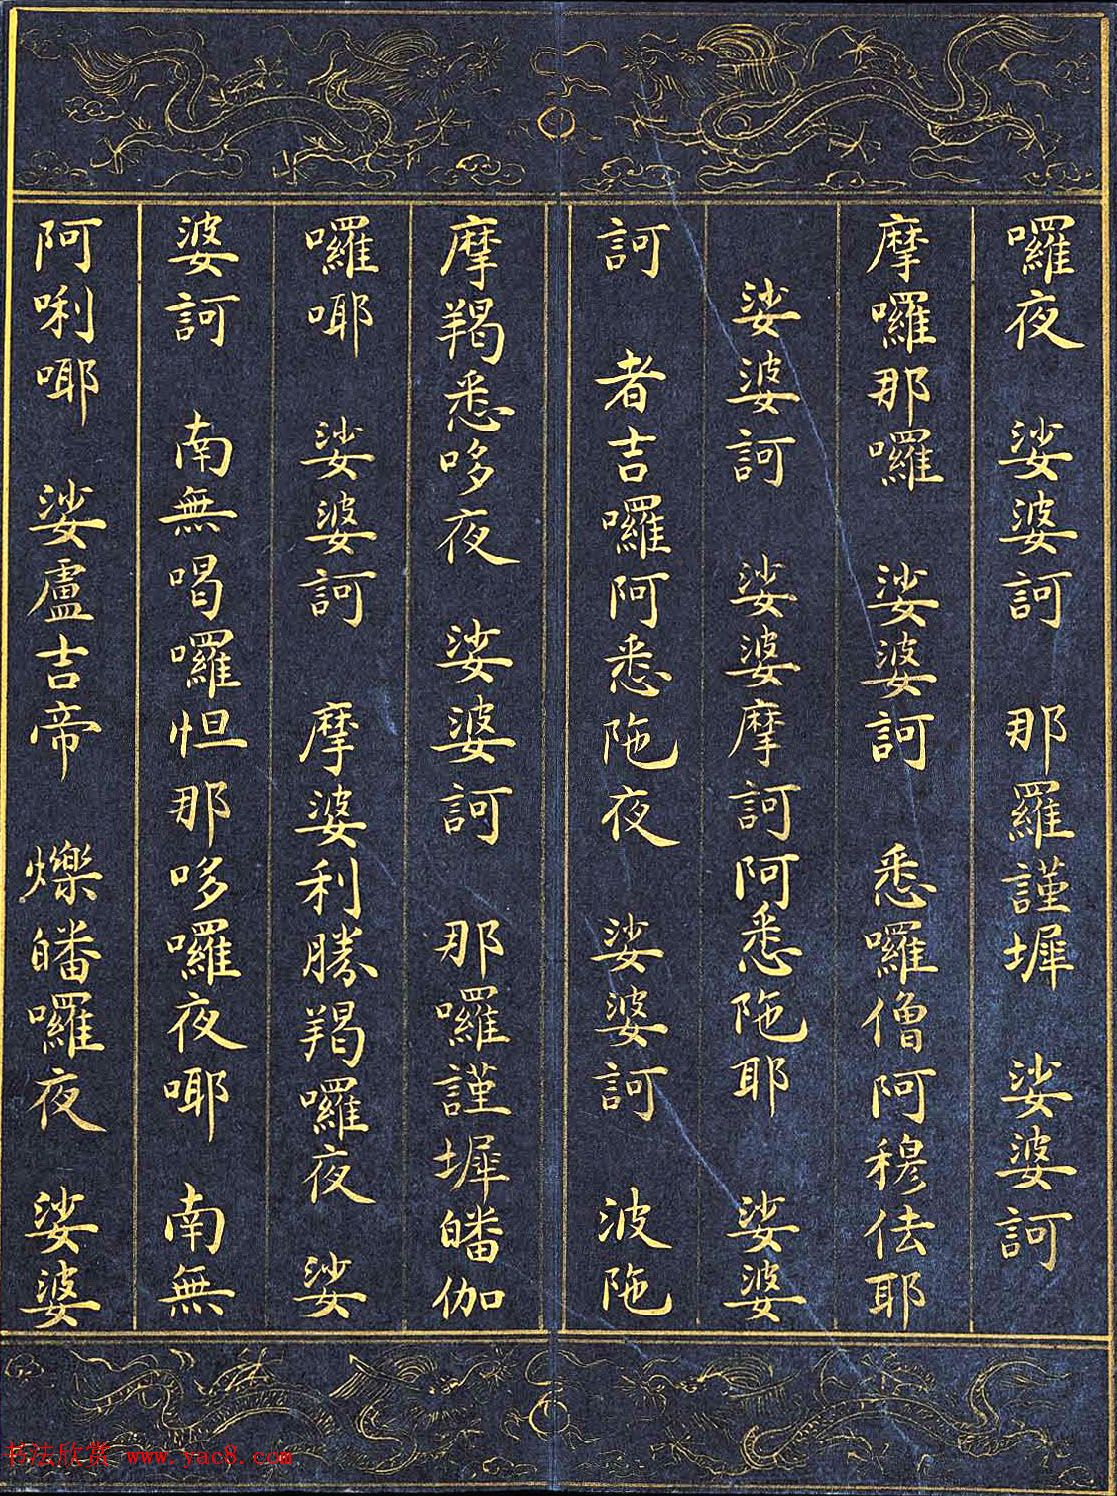 囉夜　娑婆訶　那羅謹墀　娑婆訶
摩囉那囉　娑婆訶　悉囉僧阿穆佉耶
娑婆訶　娑婆摩訶阿悉陁耶　娑婆
訶　者吉囉阿悉陁夜　娑婆訶　波陁
摩羯悉哆夜　娑婆訶　那囉謹墀皤伽
囉哪　娑婆訶　摩婆利勝羯囉夜　娑
婆訶　南無喝囉怛那哆囉夜哪　南無
阿唎哪　娑盧吉帝　爍皤囉夜　娑婆
书法欣赏 www.yac8.com